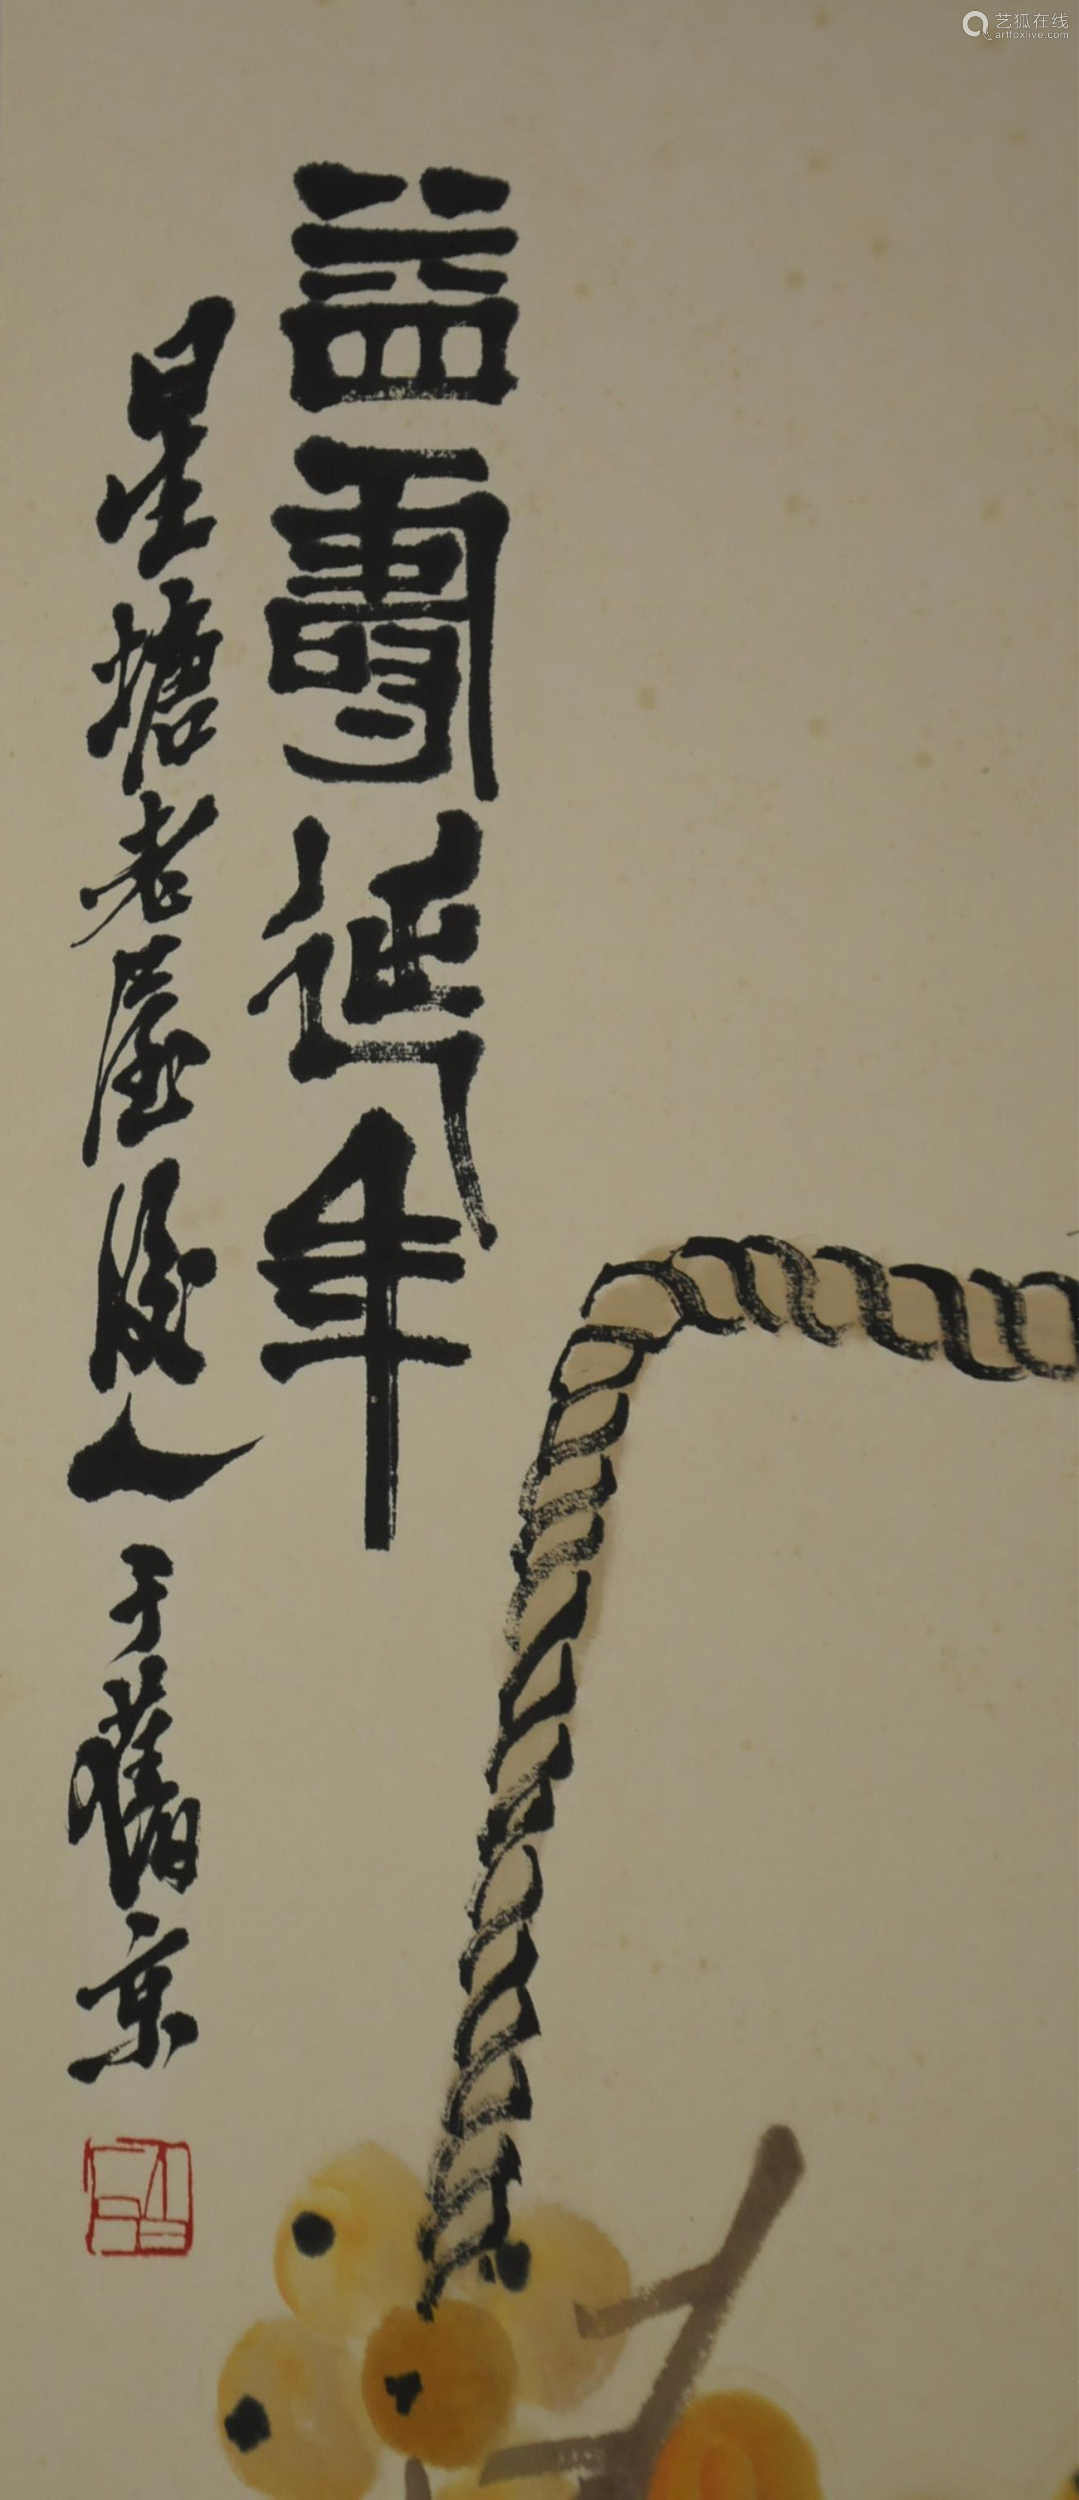 益壽延年
星塘老屋後人
于舊京
艺狐在线
artfoxlive.com